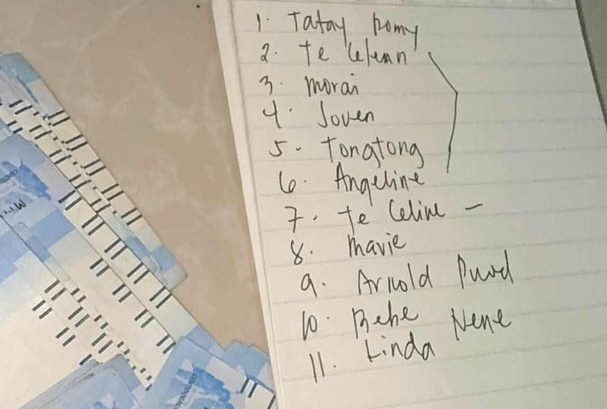 1. Tatay Romy
2. Te
3. Morai
4. Joven
5. Tongtong
6. Angeline
7. Te Celine -
8. Mavie
9. Arnold
10. Bebe Nene
11. Linda